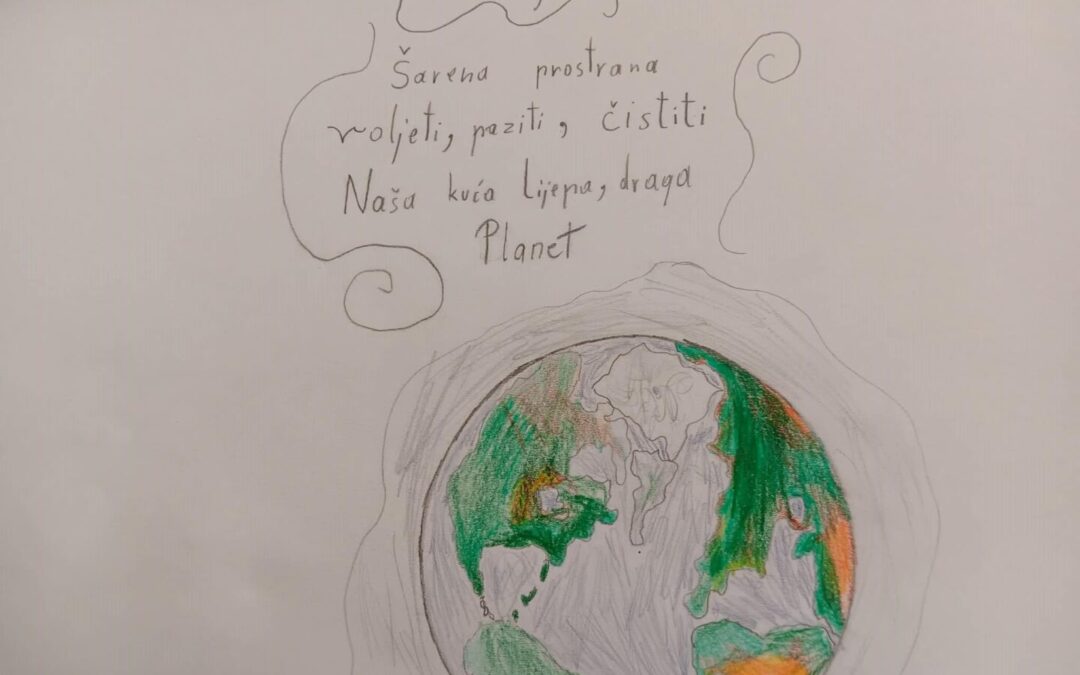 Šarena prostrana
voljeti, paziti, čistiti
Naša kuća lijepa, draga
Planet